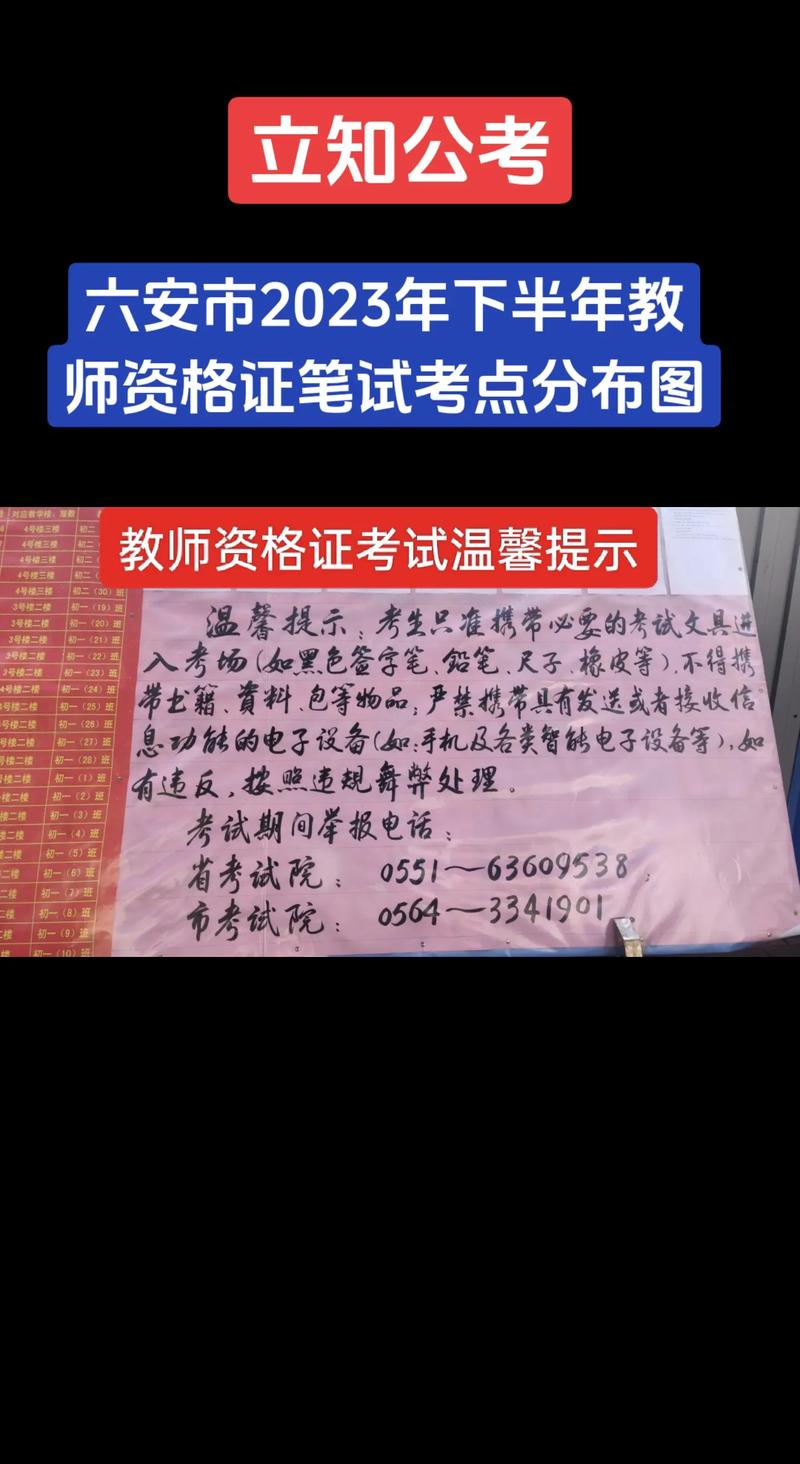 立知公考
六安市2023年下半年教
师资格证笔试考点分布图
教师资格证考试温馨提示
温馨提示：考生只准携带必要的考试文具进
入考场（如黑色签字笔、鉛笔、尺子、橡皮等），不得携
带书籍、資料、包等物品；严禁携带具有发送或者接收信
息功能的电子设备（如：手机及各类智能电子设备等），如
有违反，按照违规舞弊处理。
考试期间举报电话：
省考试院： 0551—63609538
市考试院： 0564—3341901
对应教学楼、层数
4号楼三楼 初二
4号楼三楼 初二
4号楼三楼 初二
4号楼三楼 初二
4号楼三楼 初二（30）班
3号楼二楼 初一（19）班
3号楼二楼 初一（20）班
3号楼二楼 初一（21）班
3号楼二楼 初一（22）班
3号楼三楼 初一（23）班
4号楼二楼 初一（24）班
号楼二楼 初一（25）班
号楼二楼 初一（26）班
号楼二楼 初一（27）班
号楼二楼 初一（28）班
号楼二楼 初一（1）班
号楼二楼 初一（2）班
号楼二楼 初一（3）班
号楼二楼 初一（4）班
楼二楼 初一（5）班
楼二楼 初一（6）班
楼二楼 初一（7）班
二楼 初一（8）班
二楼 初一（9）班
二楼 初一（10）班